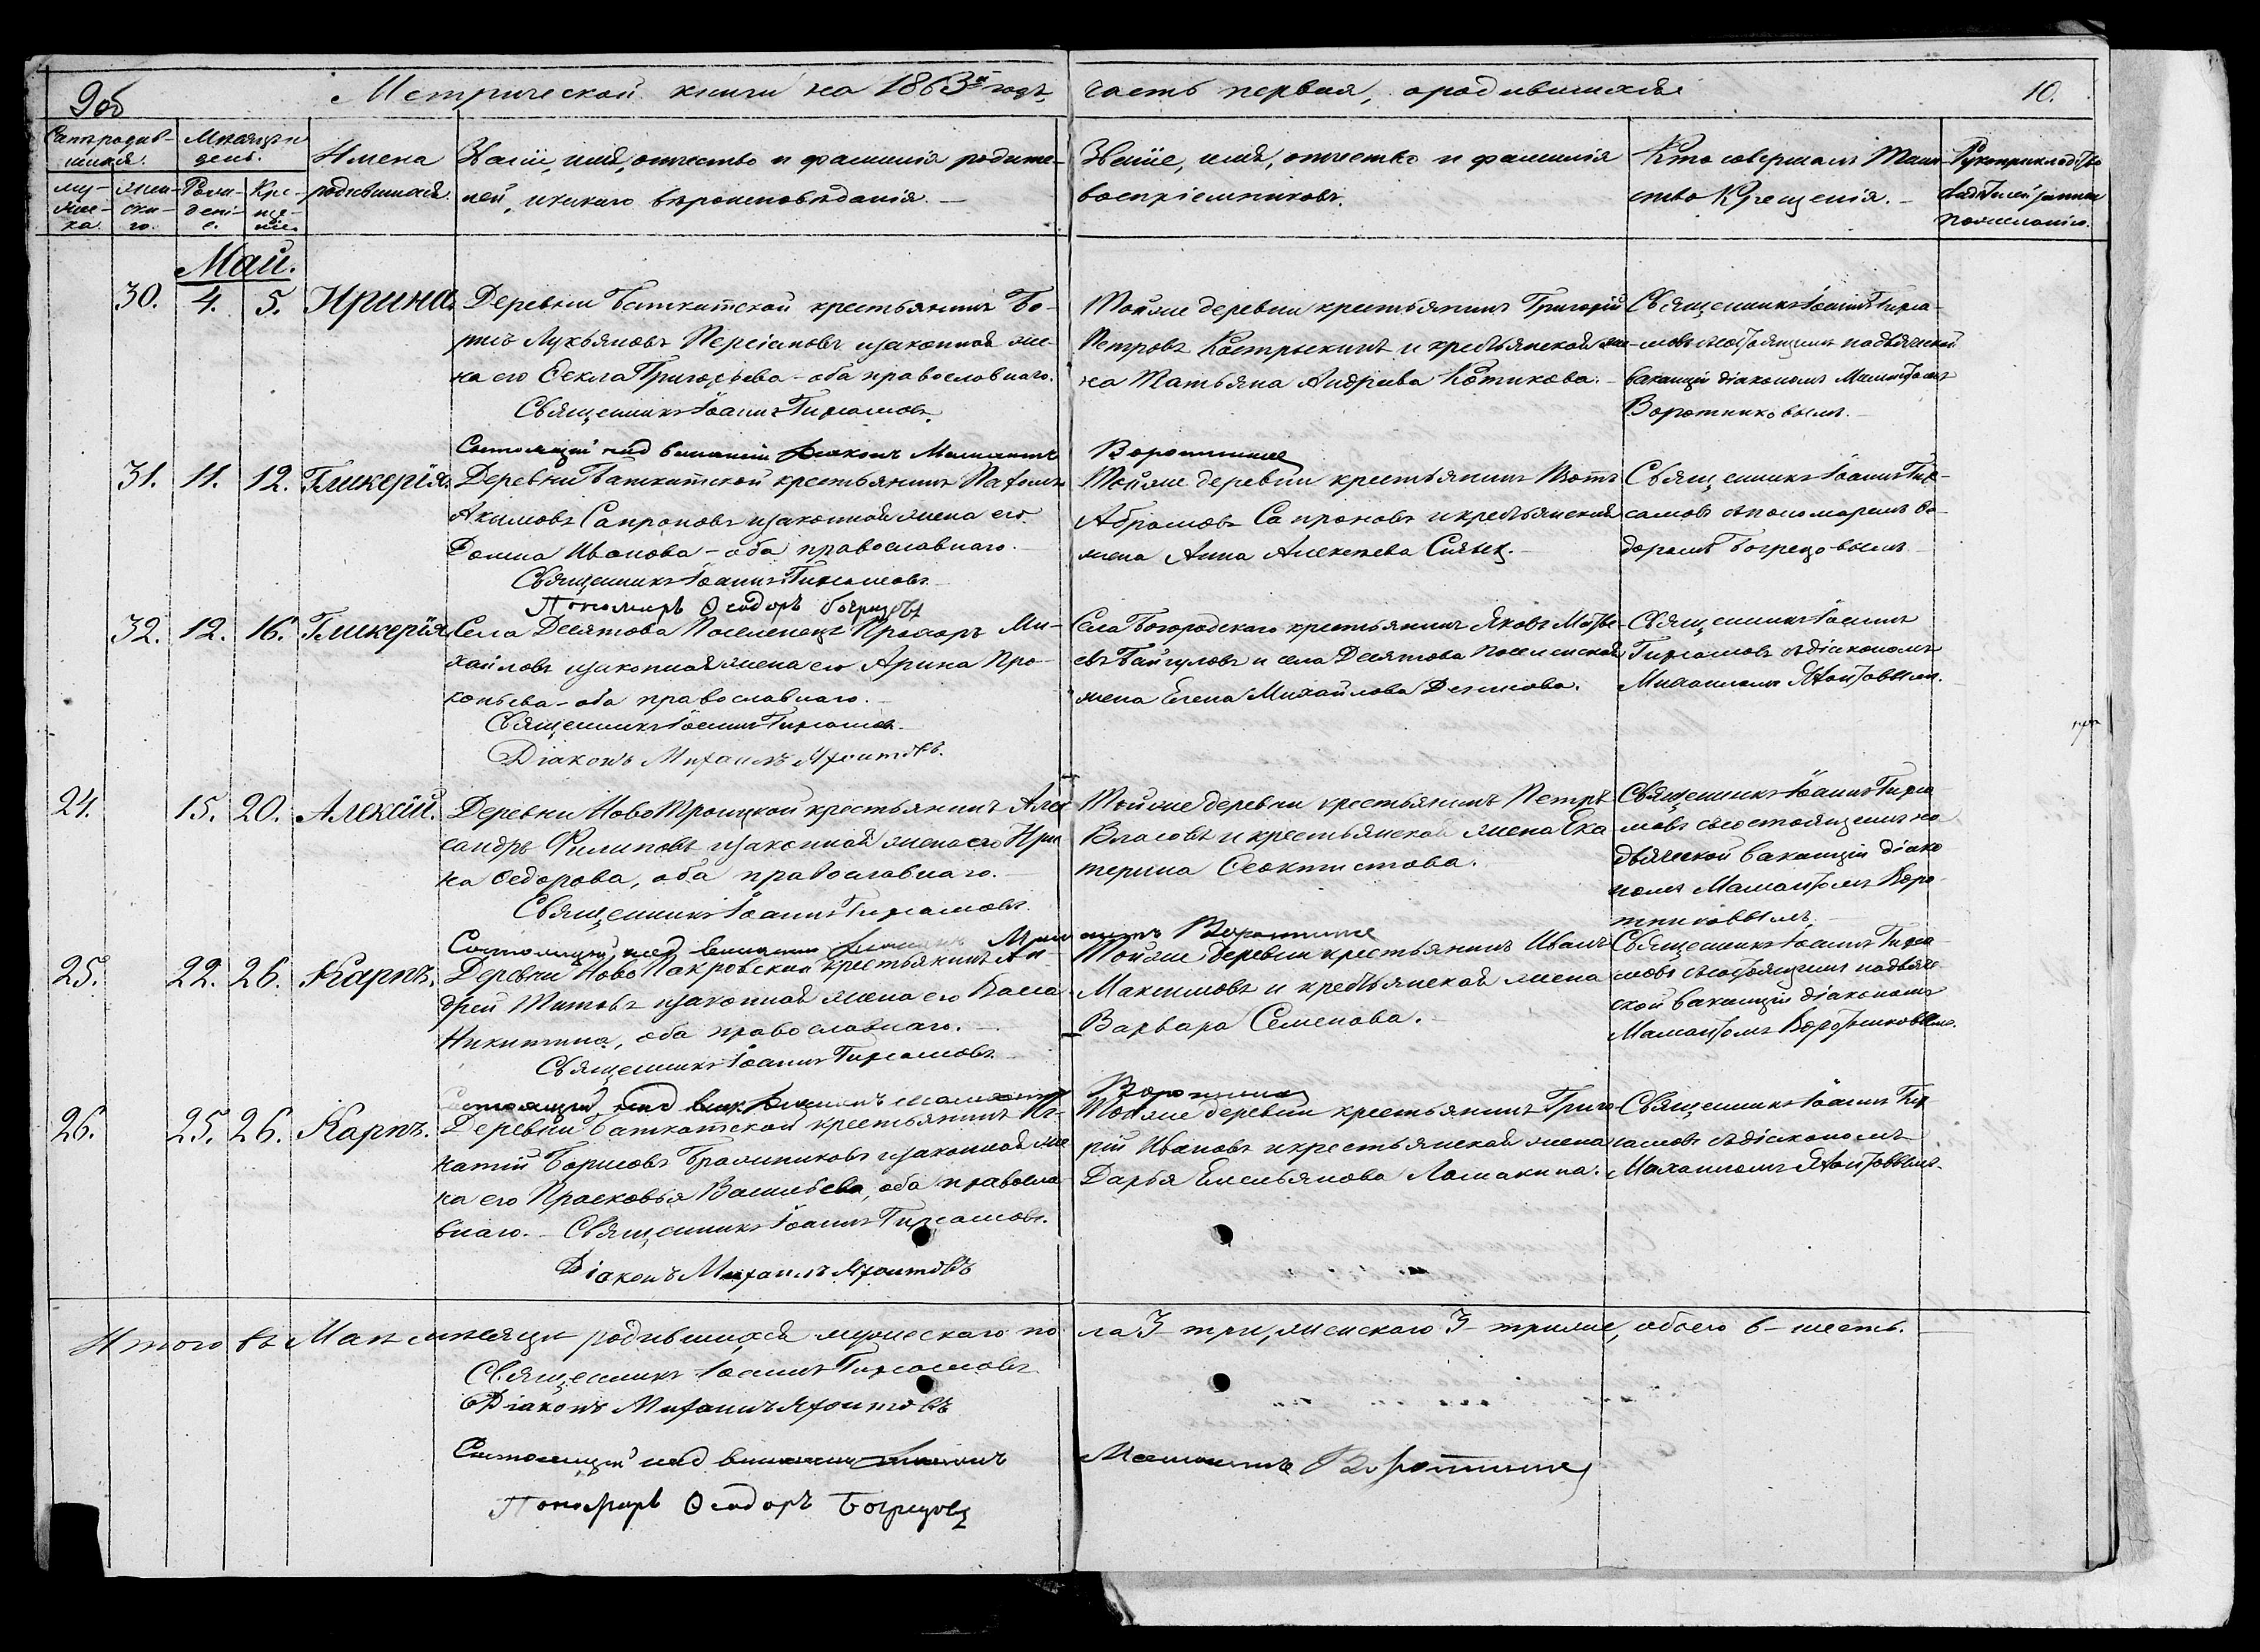 9об
Метрической книги на 1863й годъ,
часть первая, о родившихся
10.
Счетъ родив-
шихся.
му-
жес-
ка.
жен-
ска-
го.
Мѣсяцъ и
день.
Рож-
дені-
е.
Кре-
ще-
ніе.
Имена
родившихся.
Званіе, имя, отчество и фамилія родите-
лей, и какого вѣроисповѣданія. —
Званіе, имя, отчество и фамилія
воспріемниковъ.
Кто совершалъ Таин-
ство Крещенія. —
Рукоприкладство
свидѣтелей записи
по желанію.
Май.
30. 4. 5. Ирина.
Деревни Башкатской крестьянинъ Бо-
рисъ Лукьяновъ Персіановъ и законная же-
на его Ѳекла Григорьева – оба православнаго.
Священникъ Іоаннъ Гирсамовъ.
Состоящій над вакансіи Діаконъ Мамантъ
Тойже деревни крестьянинъ Григорій
Петровъ Кострыкинъ и крестьянская же-
на Татьяна Андреева Котикова. –
Воротников
Священникъ Іоаннъ Гирса-
мовъ съ состоящимъ на дьяческой
вакансіи діакономъ Мамантомъ
Воротниковымъ. –
31. 11. 12. Гликерія.
Деревни Башкатской крестьянинъ Пахомъ
Акимовъ Сапроновъ и законная жена его
Домна Иванова – оба православнаго.
Священникъ Іоаннъ Гирсамовъ
Пономарь Ѳеодоръ Богрецовъ
Тойже деревни крестьянинъ Изотъ
Абрамовъ Сапроновъ и крестьянская
жена Анна Алексѣева –
Священникъ Іоаннъ Гир-
самовъ съ пономаремъ Ѳе-
доромъ Богрецовымъ
32. 12. 16. Гликерія
Села Десятова Поселенецъ Прохоръ Ми-
хайловъ и законная жена его Арина Про-
копьева – оба православнаго. –
Священникъ Іоаннъ Гирсамовъ
Діаконъ Михаилъ Яхонтовъ.
Села Богородскаго крестьянинъ Яковъ Матве-
евъ Байгуловъ и села Десятова поселенская
жена Елена Михайлова Денисова.
Священникъ Іоаннъ
Гирсамовъ съ діакономъ
Михаиломъ Яхонтовымъ.
24. 15. 20. Алексій.
Деревни НовоТроицкой крестьянинъ Алек
сандръ Филиповъ и законная жена его Ири
на Ѳедорова, оба православнаго. –
Священникъ Іоаннъ Гирсамовъ.
Состоящій над вакансіи Діаконъ Мам
Тойже деревни крестьянинъ Петръ
Власовъ и крестьянская жена Ека
терина Ѳеоктистова.
антъ Воротников
Священникъ Іоаннъ Гирса
мовъ съ состоящимъ на
дьяческой вакансіи діако
номъ Мамантомъ Воро
тниковымъ. –
25. 22. 26. Карпъ.
Деревни НовоПакровской крестьянинъ Ан-
дрей Титовъ и законная жена его Васса
Никитина, оба православнаго. –
Священникъ Іоаннъ Гирсамовъ
Состоящій над вак. Діаконъ Мамантъ
Тойже деревни крестьянинъ Иванъ
Максимовъ и крестьянская жена
Варвара Семенова. –
Воротников
Священникъ Іоаннъ Гирса
мовъ съ состоящимъ на дьяче
ской вакансіи діакономъ
Мамантомъ Воротниковымъ.
26. 25. 26. Карпъ.
Деревни Башкатской крестьянинъ Иг-
натій Борисовъ Бражниковъ и законная же
на его Прасковья Васильева, оба православ
внаго. – Священникъ Іоаннъ Гирсамовъ.
Діаконъ Михаилъ Яхонтовъ
Тойже деревни крестьянинъ Григо
рій Ивановъ и крестьянская жена
Дарья Емельянова Ломакина.
Священникъ Іоаннъ Гир
самовъ съ діакономъ
Михаиломъ Яхонтовымъ.
Итого въ Маѣ мѣсяцѣ родившихся мужескаго по
ла 3 – три, женскаго 3 – триже, обоего 6 – шесть. –
Священникъ Іоаннъ Гирсамовъ
Діаконъ Михаилъ Яхонтовъ
Состоящій над вакансіи Діаконъ
Мамантъ Воротников
Пономарь Ѳеодоръ Богрецовъ